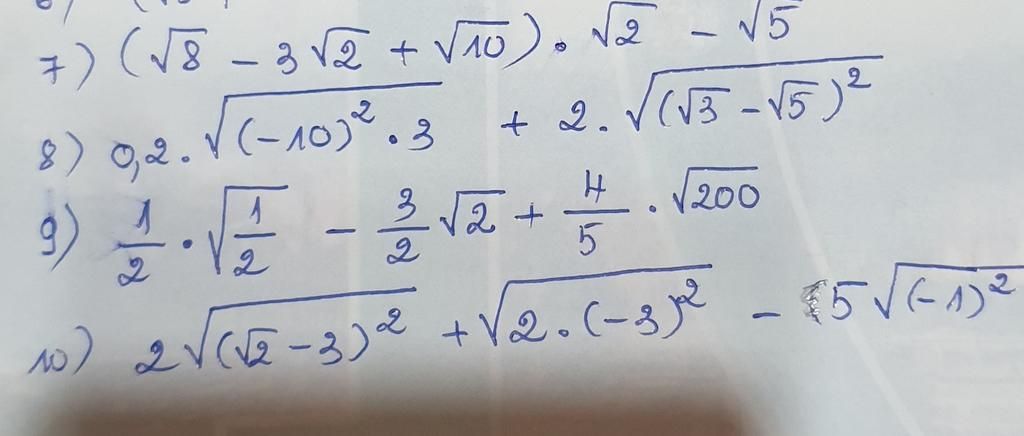 7) (√8 - 3√2 + √10) · √2 - √5
8) 0,2 · √((-10)² · 3) + 2 · √((√3 - √5)²)
9) 1/2 · √(1/2) - 3/2 √2 + 4/5 · √200
10) 2√((√2 - 3)²) + √(2 · (-3)²) - 5√((-1)²)